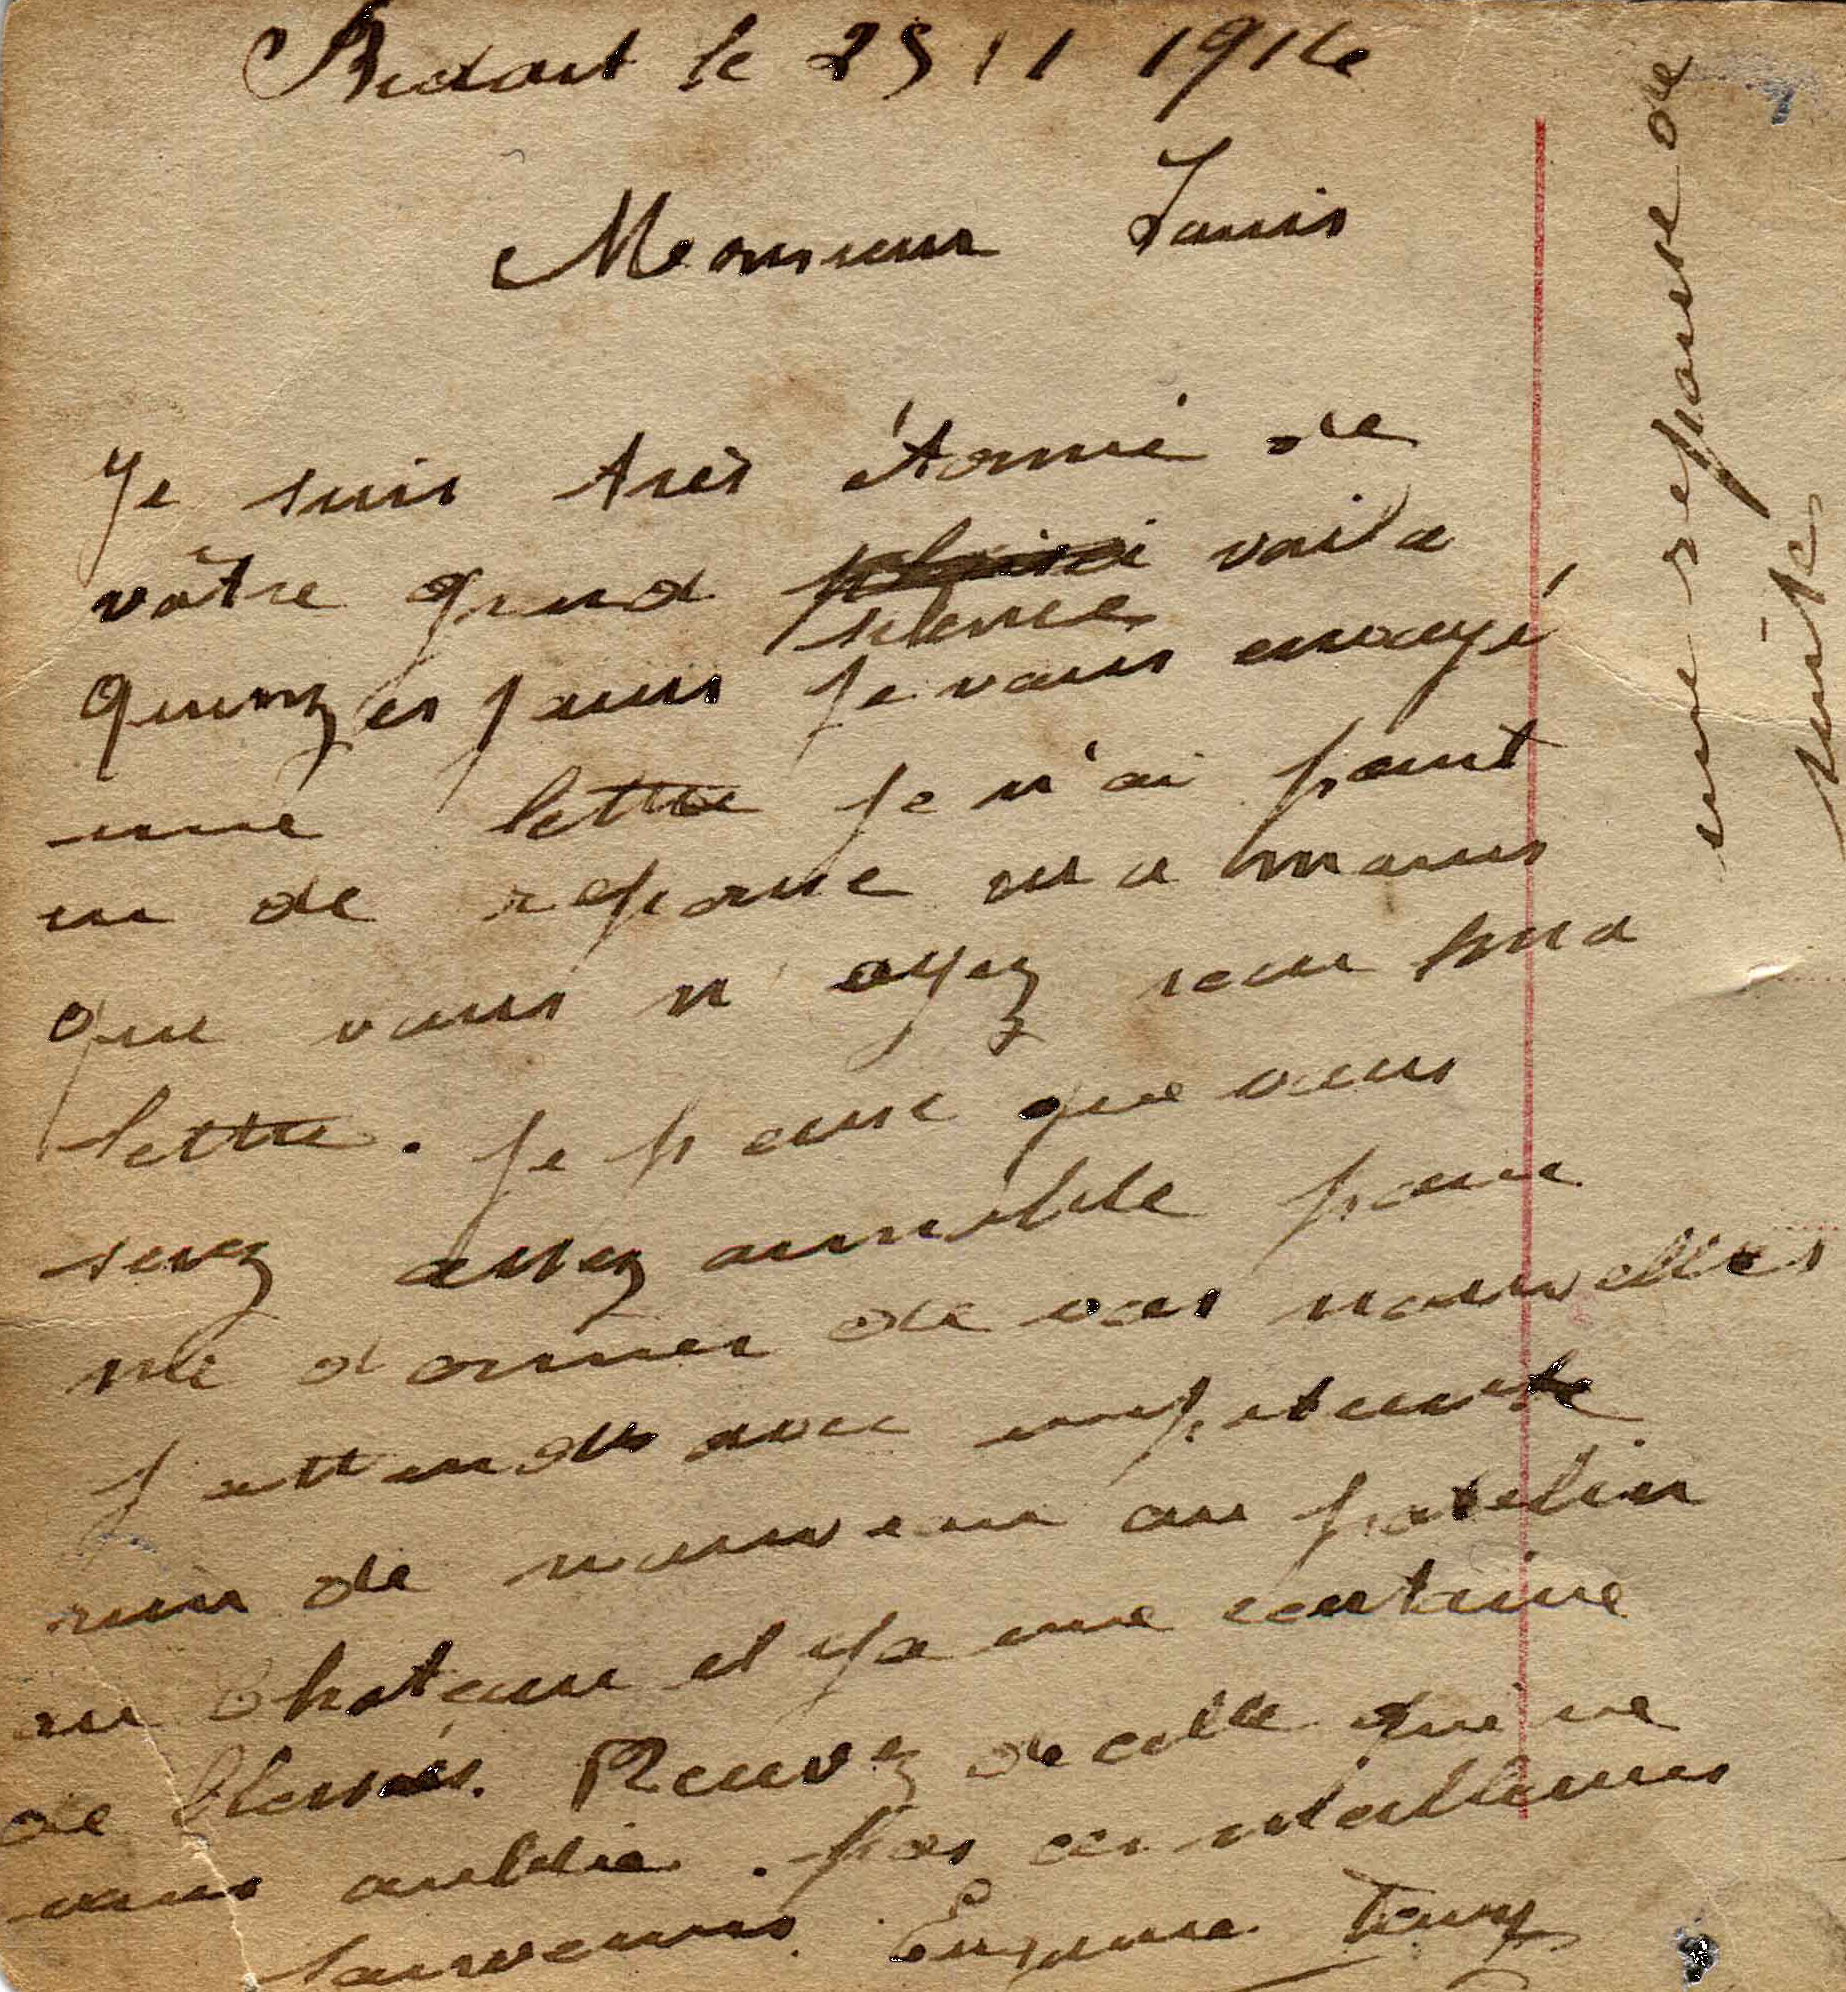 Bidart le 25 11 1914
Monsieur Louis
Je suis très étonné de
vôtre grend silence voila
quinzes jours je vous envoyé
une lettre je n'ai point
eu de reponse
que vous n'ayez recu ma
lettre. Je pense que vous
serez assez aimable pour
me donner de vos nouvelles
j attends avec impatiente
rien de nouveau au patelin
au Chateau il ya une centaine
de blessés. Recevez de celle qui ne
vous oublie. pas ces meilleures
souvenirs.
une reponse de
suite